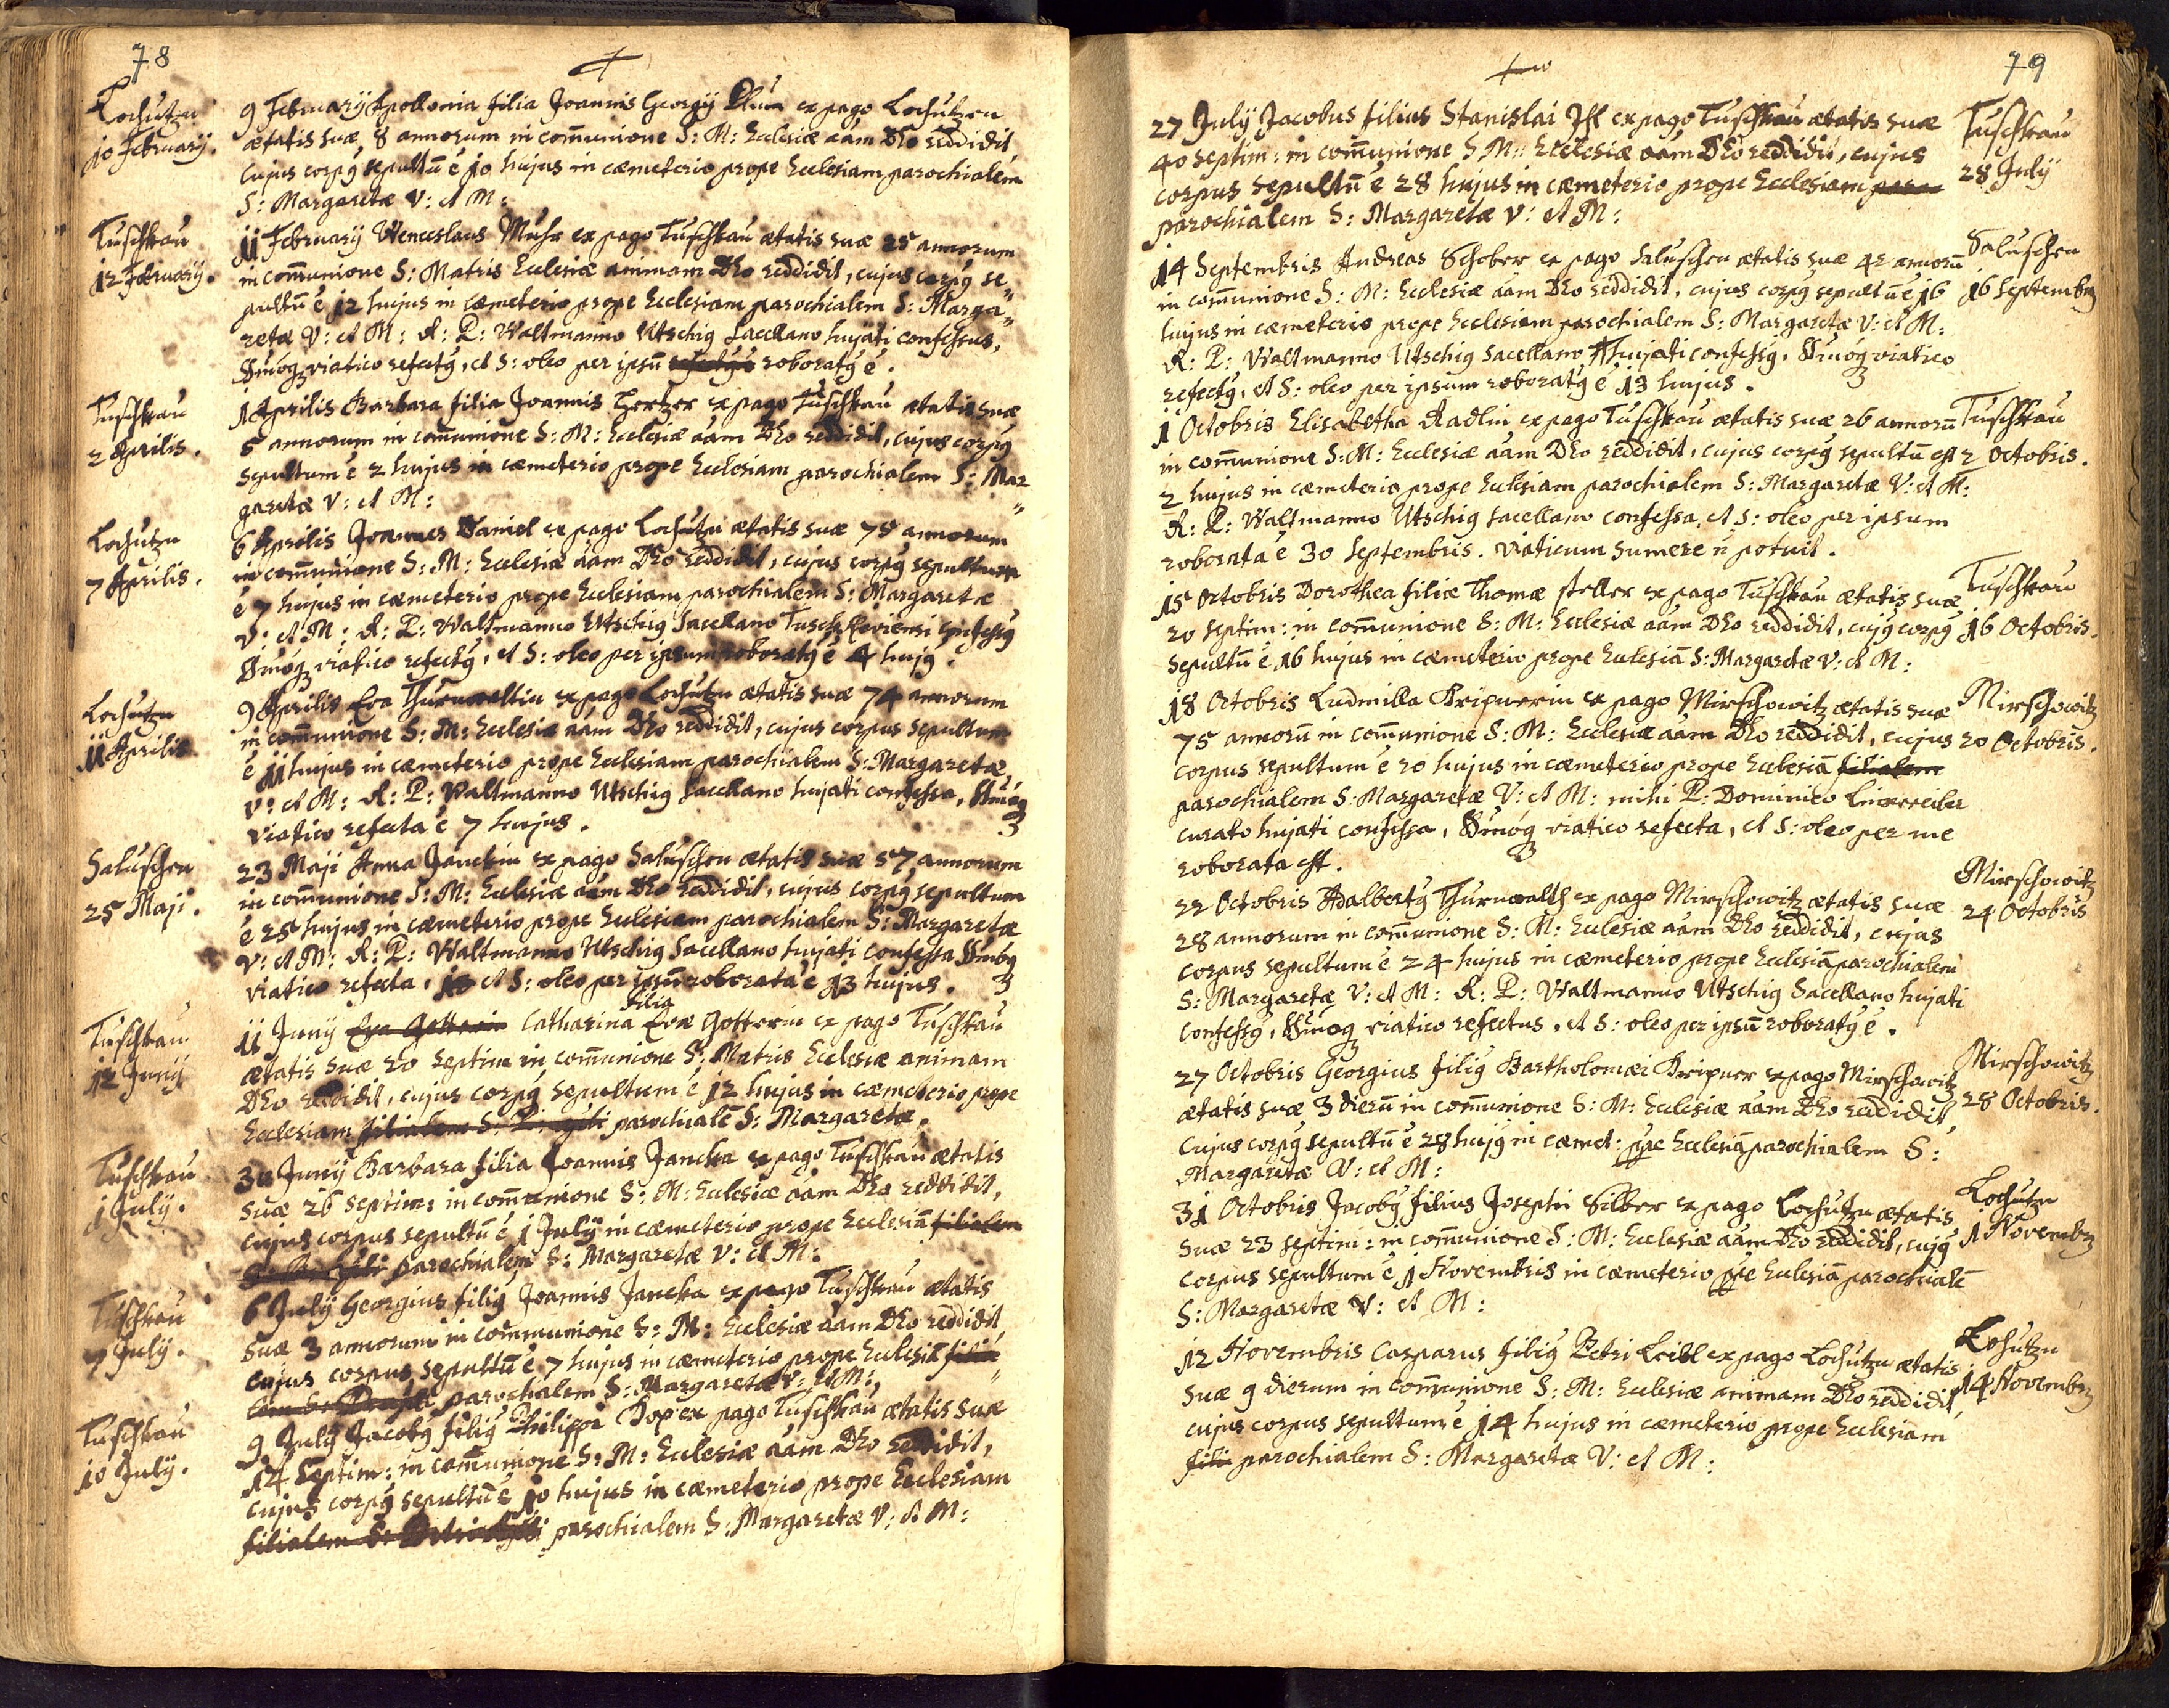 78
Lochutzn
10 February.
9 February Apollonia filia Joannis Georgij Plum ex pago Lochutzen
ætatis suæ 8 annorum in com̄unione S: M: Ecclesiæ aām Dēo reddidit
cujus corpꝰ sepultū ē 10 hujus in cæmeterio prope Ecclesiam parochialem
S: Margaretæ V: et M:
Tuschkau
12 February.
11 February Wenceslaus Muhr ex pago Tuschkau ætatis suæ 25 annorum
in com̄unione S: Matris Ecclesiæ animam Dēo reddidit, cujus corpꝰ se„
pultū ē 12 hujus in cæmeterio prope Ecclesiam parochialem S: Marga„
retæ V: et M: R: P: Waltmanno Utschig Sacellano hujati confessus,
SSmoq; viatico refectꝰ, et S: oleo per ipsū roboratꝰ ē.
Tuschkau
2 Aprilis.
1 Aprilis Barbara filia Joannis Hertzer ex pago Tuschkau ætatis suæ
5 annorum in com̄unione S: M: Ecclesiæ aām Dēo reddidit, cujus corpꝰ
sepultum ē 2 hujus in cæmeterio prope Ecclesiam parochialem S: Mar„
garetæ V: et M:
Lochutzn
7 Aprilis.
6 Aprilis Joannes Daniel ex pago Lochutzn ætatis suæ 75 annorum
in com̄unione S: M: Ecclesiæ aām Dēo reddidit, cujus corpꝰ sepultum
ē 7 hujus in cæmeterio prope Ecclesiam parochialem S: Margaretæ
V: et M: R: P: Waltmanno Utschig Sacellano Tuschkoviensi confessꝰ
SSmoq; viatico refectꝰ, et S: oleo per ipsum roboratꝰ ē 4 hujꝰ.
Lochutzn
11 Aprilis
9 Aprilis Eva Thurnwaltin ex pago Lochutzn ætatis suæ 74 annorum
in com̄unione S: M: Ecclesiæ aām Dēo reddidit, cujus corpus sepultum
ē 11 hujus in cæmeterio prope Ecclesiam parochialem S: Margaretæ
V: et M: R: P: Waltmanno Utschig Sacellano hujati confessa, SSmoq;
viatico refecta ē 7 hujus.
Saluschen
25 Maji.
23 Maji Anna Janckin ex pago Saluschen ætatis suæ 57 annorum
in com̄unione S: M: Ecclesiæ aām Dēo reddidit, cujus corpꝰ sepultum
ē 25 hujus in cæmeterio prope Ecclesiam parochialem S: Margaretæ
V: et M: R: P: Waltmanno Utschig Sacellano hujati confessa SSmoq;
viatico refecta, 13 et S: oleo per ipsū roborata ē 13 hujus.
Tuschkau
12 Junij
filia
11 Junij Eva Gotterin Catharina Evæ Gotterin ex pago Tuschkau
ætatis suæ 20 septim in com̄unione S: Matris Ecclesiæ animam
Dēo reddidit, cujus corpꝰ sepultum ē 12 hujus in cæmeterio prope
Ecclesiam filialem S: parochialē S: Margaretæ.
Tuschkau
1 July.
30 Junij Barbara filia Joannis Jancka ex pago Tuschkau ætatis
suæ 26 septim: in com̄unione S: M: Ecclesiæ aām Dēo reddidit,
cujus corpus sepultū ē 1 July in cæmeterio prope Ecclesiā filialem
parochialem S: Margaretæ V: et M:
Tuschkau
7 July.
6 July Georgius filiꝰ Joannis Jancka ex pago Tuschkau ætatis
suæ 3 annorum in communione S: M: Ecclesiæ aām Dēo reddidit
cujus corpus sepultū ē 7 hujus in cæmeterio prope Ecclesiā filia„
lem S: parochialem S: Margaretæ V: et M:
Tuschkau
10 July.
9 July Jacobꝰ filiꝰ Philippi Dop ex pago Tuschkau ætatis suæ
14 septim: in com̄unione S: M: Ecclesiæ aām Dēo reddidit,
cujus corpꝰ sepultū ē 10 hujus in cæmeterio prope Ecclesiam
filialem S: parochialem S: Margaretæ V: et M:
79
27 July Jacobus filius Stanislai Ihl ex pago Tuschkau ætatis suæ
40 septim: in com̄unione S M: Ecclesiæ aām Dēo reddidit, cujus
corpus sepultū ē 28 hujus in cæmeterio prope Ecclesiam paro
parochialem S: Margaretæ V: et M:
Tuschkau
28 July
14 Septembris Andreas Schober ex pago Saluschen ætatis suæ 42 annorū
in com̄unione S: M: Ecclesiæ aām Dēo reddidit, cujus corpꝰ sepultū ē 16
hujus in cæmeterio prope Ecclesiam parochialem S: Margaretæ V: et M:
R: P: Waltmanno Utschig Sacellano hujati confessꝰ, SSmoq; viatico
refectꝰ, et S: oleo per ipsum roboratꝰ ē 13 hujus.
Saluschen
16 Septembrꝫ
1 Octobris Elisabetha Radlin ex pago Tuschkau ætatis suæ 26 annorū
in com̄unione S: M: Ecclesiæ aām Dēo reddidit, cujus corpꝰ sepultū est
2 hujus in cæmeterio prope Ecclesiam parochialem S: Margaretæ V: et M:
R: P: Waltmanno Utschig Sacellano confessa, et S: oleo per ipsum
roborata ē 30 Septembris. Viaticum sumere n̄ potuit.
Tuschkau
2 Octobris.
15 Octobris Dorothea filiæ Thomæ stoller ex pago Tuschkau ætatis suæ
20 septim: in com̄unione S: M: Ecclesiæ aām Dēo reddidit, cujꝰ corpꝰ
sepultū ē 16 hujus in cæmeterio prope Ecclesiā S: Margaretæ V: et M:
Tuschkau
16 Octobris.
18 Octobris Ludmilla Kripnerin ex pago Mirschowitz ætatis suæ
75 annorū in com̄unione S: M: Ecclesiæ aām Dēo reddidit, cujus
corpus sepultum ē 20 hujus in cæmeterio prope Ecclesiā filialem
parochialem S: Margaretæ V: et M: mihi P: Dominico
curato hujati confessa, SSmoq; viatico refecta, et S: oleo per me
roborata est.
Mirschowitz
20 Octobris.
22 Octobris Adalbertꝰ Thurnwaldt ex pago Mirschowitz ætatis suæ
28 annorum in com̄unione S: M: Ecclesiæ aām Dēo reddidit, cujus
corpus sepultum ē 24 hujus in cæmeterio prope Ecclesiā parochialem
S: Margaretæ V: et M: R: P: Waltmanno Utschig Sacellano hujati
confessꝰ, SSmoq; viatico refectus, et S: oleo per ipsū roboratꝰ ē.
Mirschowitz
24 Octobris
27 Octobris Georgius filiꝰ Bartholomæi Kripner ex pago Mirschowitz
ætatis suæ 3 dierū in com̄unione S: M: Ecclesiæ aām Dēo reddidit
cujus corpꝰ sepultū ē 28 hujꝰ in cæmet: ppe Ecclesiā parochialem S:
Margaretæ V: et M:
Mirschowitz
28 Octobris.
31 Octobris Jacobꝰ filius Josephi Silber ex pago Lochutzn ætatis
suæ 23 septim: in com̄unione S: M: Ecclesiæ aām Dēo reddidit, cujꝰ
corpus sepultum ē 1 Novembris in cæmeterio ppe Ecclesiā parochialē
S: Margaretæ V: et M:
Lochutzn
1 Novembrꝫ
12 Novembris Casparus filiꝰ Petri Leibl ex pago Lochutzn ætatis
suæ 9 dierum in com̄unione S: M: Ecclesiæ animam Dēo reddidit,
cujus corpus sepultum ē 14 hujus in cæmeterio prope Ecclesiam
fili parochialem S: Margaretæ V: et M:
Lohutzn
14 Novembrꝫ